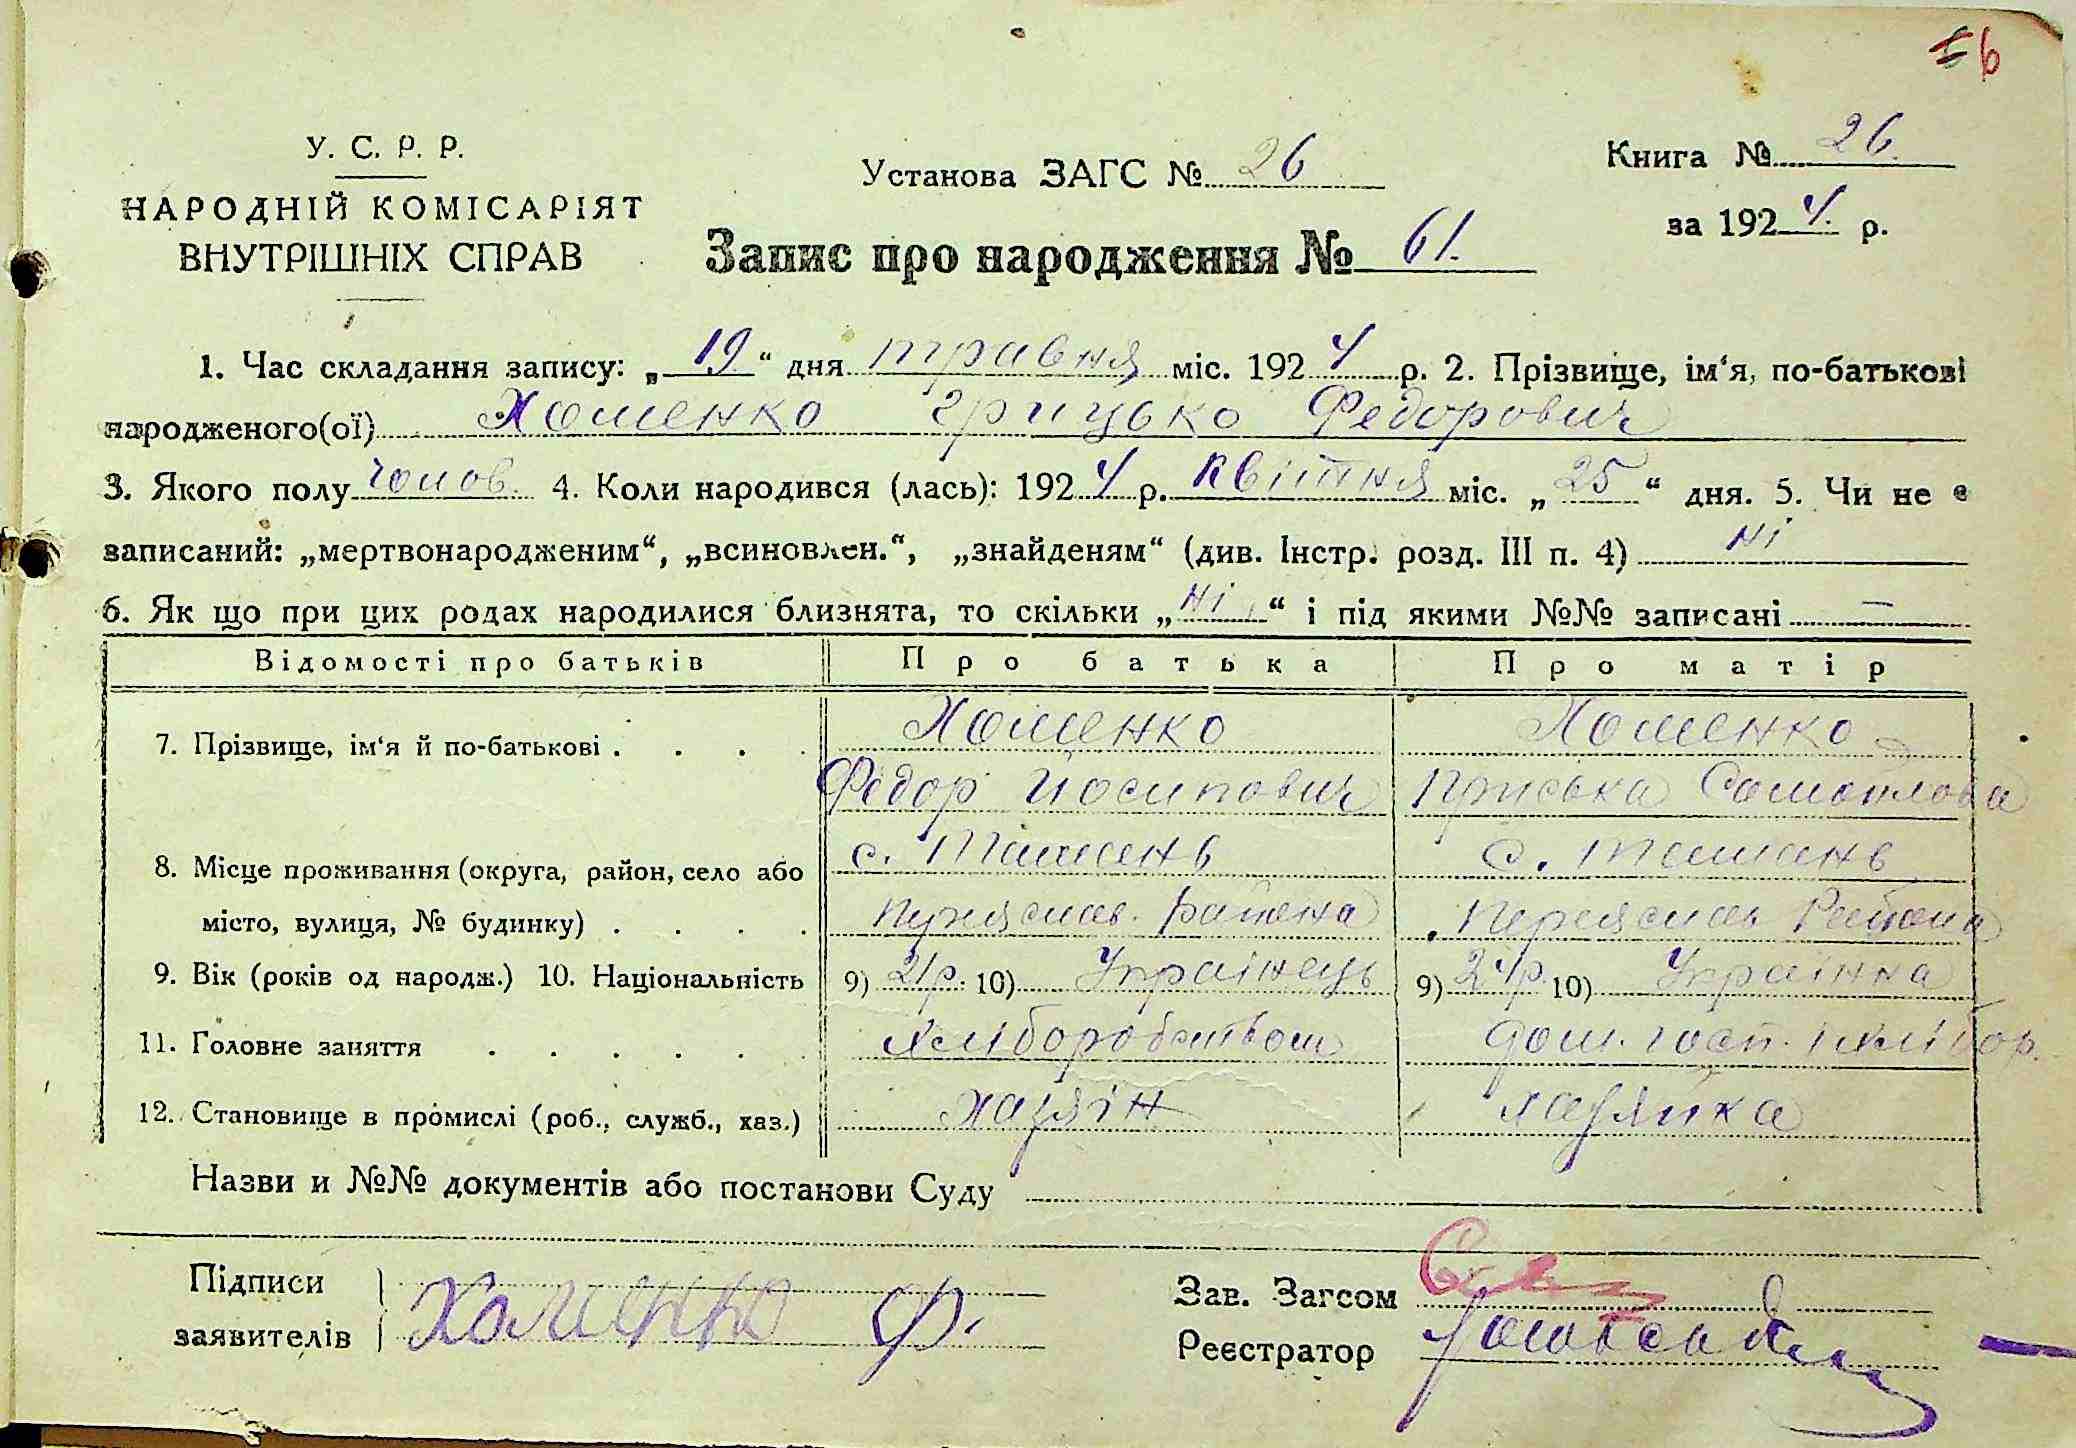 6
У. С. Р. Р.
НАРОДНІЙ КОМІСАРІЯТ
ВНУТРІШНІХ СПРАВ
Установа ЗАГС № 26
Книга № 26.
за 1924. р.
Запис про народження № 61.
1. Час складання запису: „19.“ дня травня міс. 1924 р. 2. Прізвище, ім‘я, по-батькові
народженого(ої) Хоменко Грицько Федорович
3. Якого полу чолов. 4. Коли народився (лась): 1924 р. Квітня міс. „25“ дня. 5. Чи не є
записаний: „мертвонародженим“, „всиновлен.“, „знайденям“ (див. Інстр. розд. III п. 4) ні
6. Як що при цих родах народилися близнята, то скільки „ні“ і під якими №№ записані —
Відомості про батьків Про батька Про матір
7. Прізвище, ім‘я й по-батькові . . . . Хоменко Хоменко
Федор Йосипович Пріська Самойлова
8. Місце проживання (округа, район, село або с. Ташань с. Ташань
місто, вулиця, № будинку) . . . . Переяслав. Района Переяслав Района
9. Вік (років од народж.) 10. Національність 9) 10) Українець 9) 24р. 10) Українка
11. Головне заняття . . . . . . Хліборобством дом. госп. і хлібор.
12. Становище в промислі (роб., служб., хаз.) хазяїн хазяйка
Назви и №№ документів або постанови Суду
Підписи
заявителів Хоменко Ф.
Зав. Загсом
Реєстратор